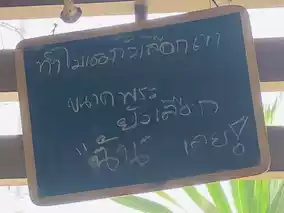 ทำไมเธอถึงเลือกเขา
ขนาดพระ
ยังเลือก
"ฉัน" เลย!